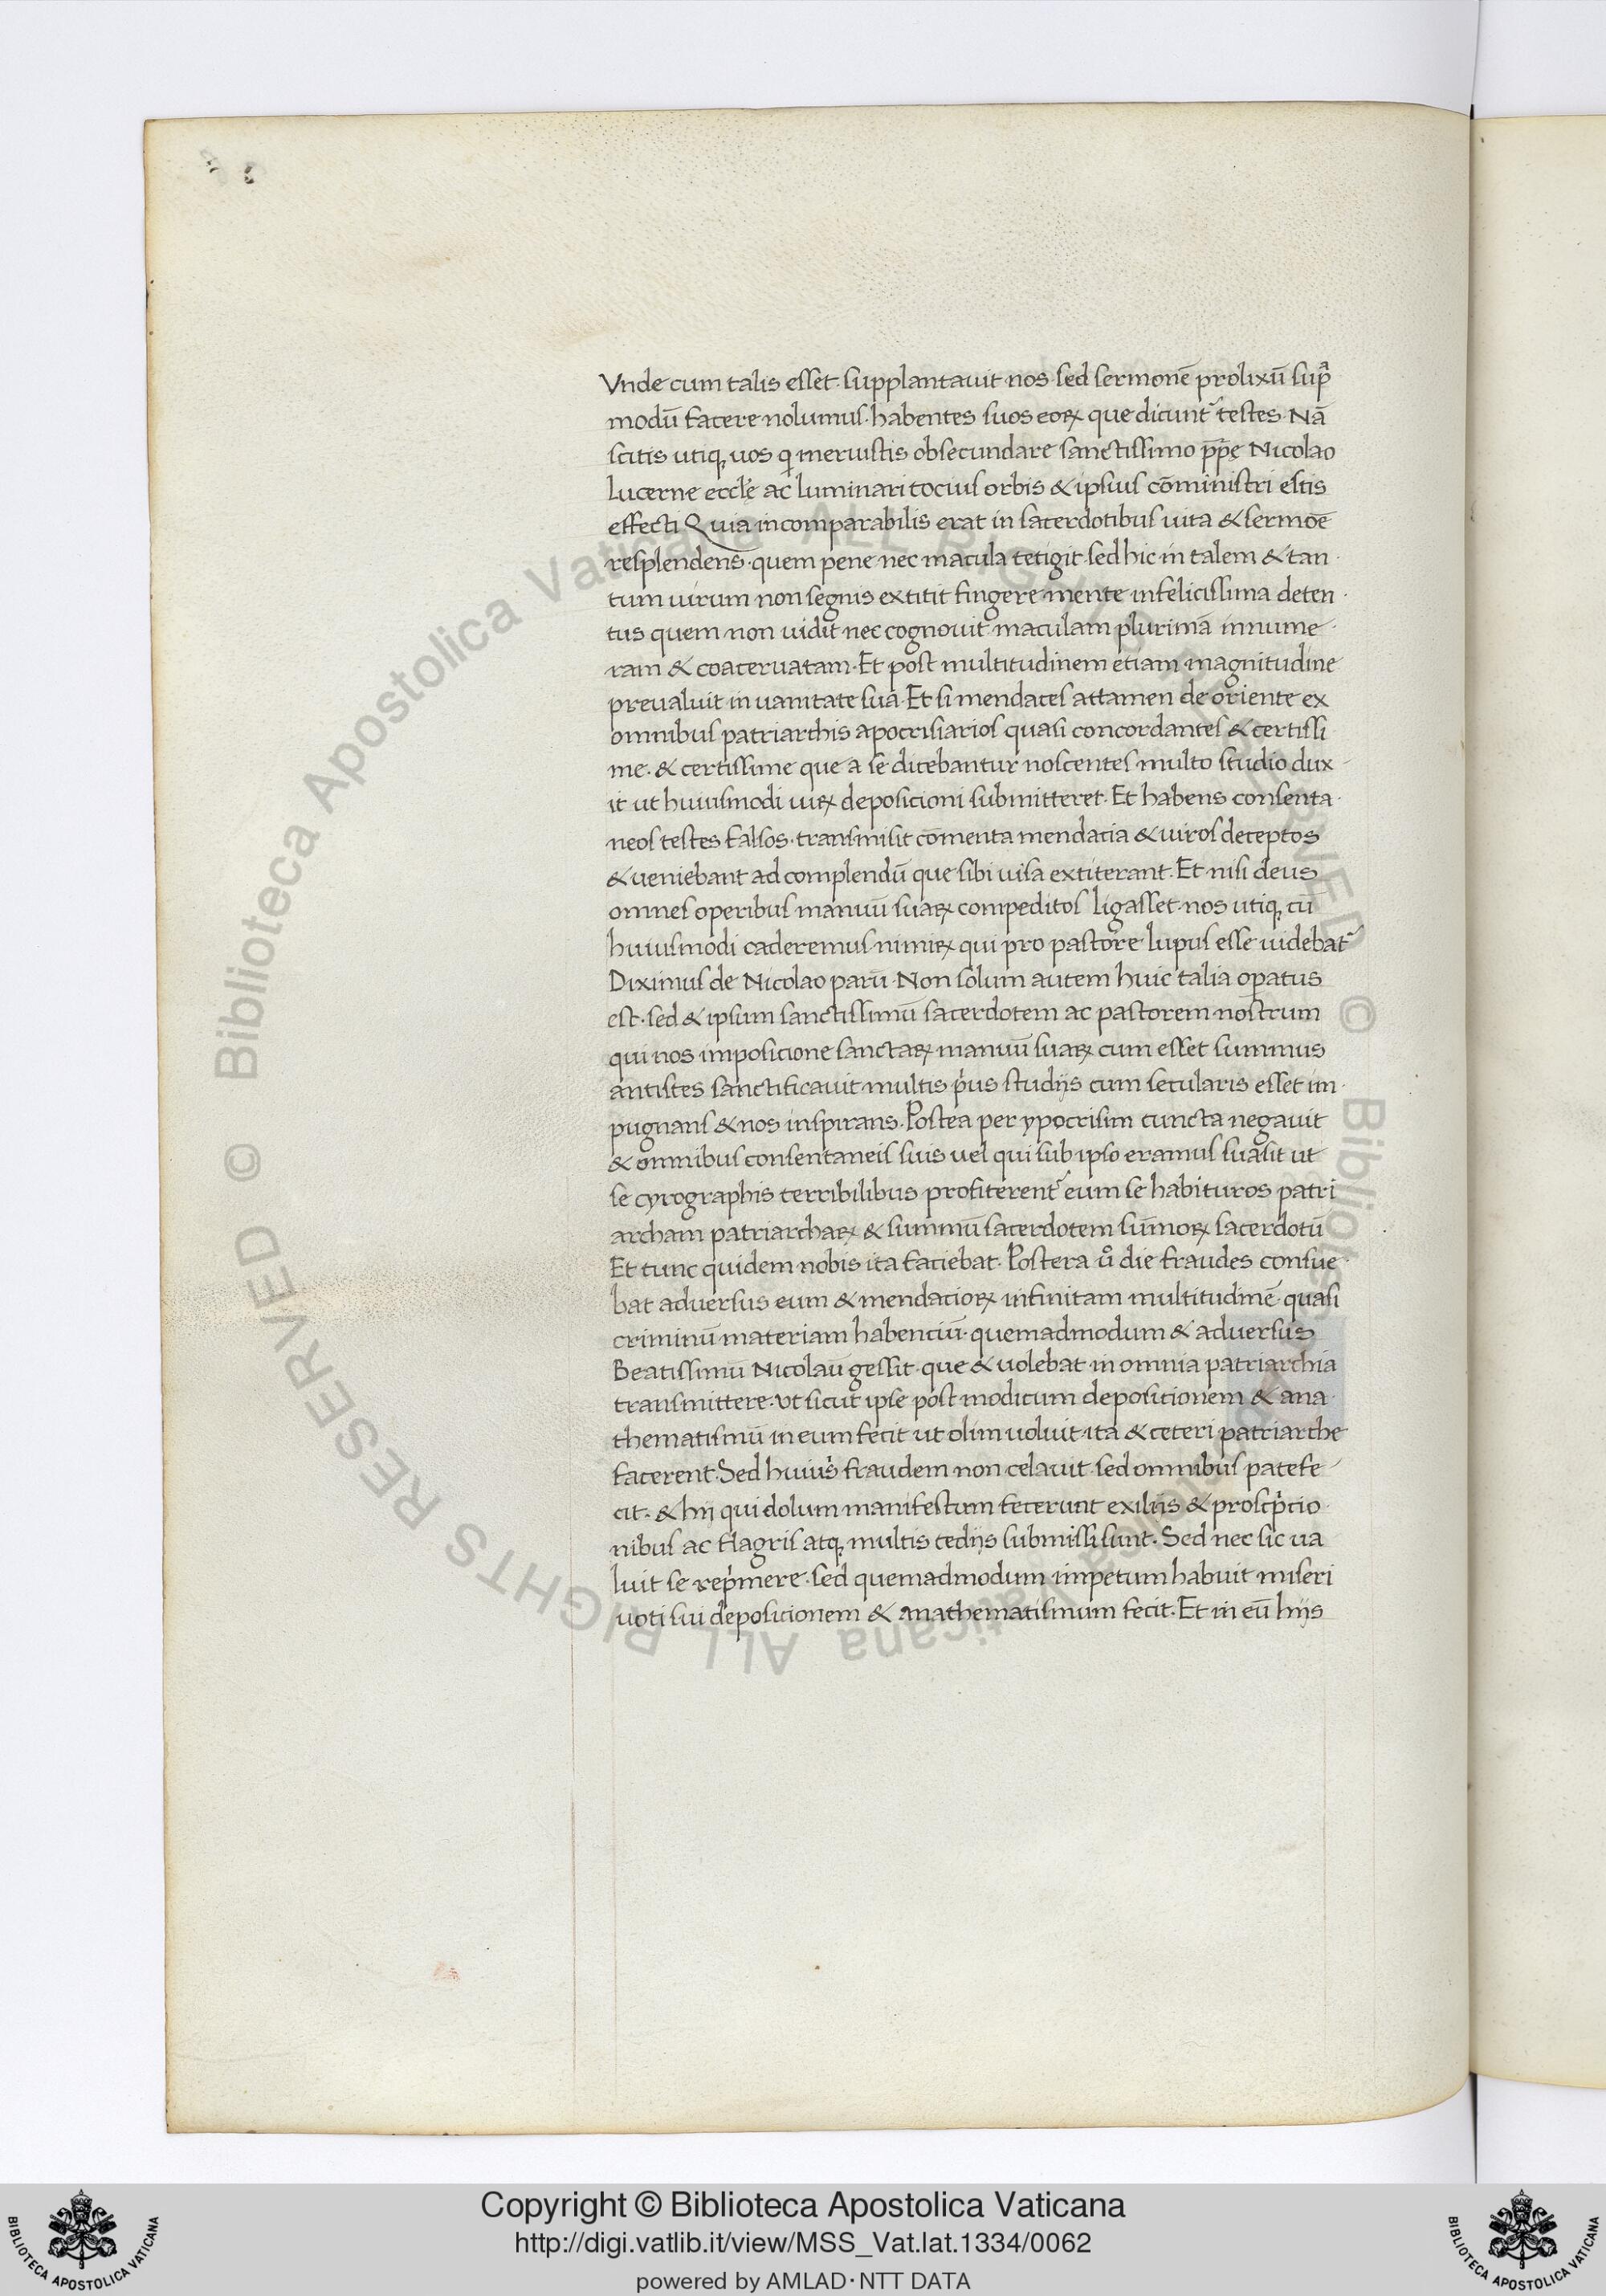 Vnde cum talis esset supplantauit nos sed sermonē prolixū suꝑ̄
modū facere nolumus· habentes suos eoꝝ que dicunt᷑ testes· Nā
scitis utiqꝫ uos qͥ meruistis obsecundare sanctissimo pp̄ę Nicolao
Lucerne eccłe ac luminari tocius orbis & ipsius cōministri estis
effecti Quia incomparabilis erat in sacerdotibus uita & sermōe
resplendens· quem pene nec macula tetigit sed hic in talem & tan
tum uirum non segnis extitit fingere mente infelicissima deten
tus quem non uidit nec cognouit maculam plurimā innume
ram & coaceruatam· Et post multitudinem etiam magnitudine
preualuit in uanitate sua· Et si mendaces attamen de oriente ex
omnibus patriarchis apocrisiarios quasi concordantes & certissi
me· & certissime que a se dicebantur noscentes multo studio dux
it ut huiusmodi uiꝝ deposicioni submitteret· Et habens consenta
neos testes falsos· transmisit cōmenta mendacia & uiros deceptos
& ueniebant ad complendū que sibi uisa extiterant· Et nisi deus
omnes operibus manuū suaꝝ compeditos ligasset· nos utiqꝫ cū
huiusmodi caderemus nimiꝝ qui pro pastore lupus esse uidebat᷑
Diximus de Nicolao parū· Non solum autem huic talia oꝑatus
est· sed & ipsum sanctissimū sacerdotem ac pastorem nostrum
qui nos imposicione sanctaꝝ manuū suaꝝ cum esset summus
antistes sanctificauit multis pͥus studijs cum secularis esset im
pugnans & nos inspirans· Postea per ypocrisim cuncta negauit
& omnibus consentaneis suis uel qui sub ipso eramus suasit ut
se cyrographis terribilibus profiterent᷑ eum se habituros patri
archam patriarchaꝝ & summū sacerdotem sūmoꝝ sacerdotū
Et tunc quidem nobis ita faciebat· Postera uͦ die fraudes consue
bat aduersus eum & mendacioꝝ infinitam multitudinē quasi
criminū materiam habenciū· quemadmodum & aduersus
Beatissimū Nicolaū gessit· que & uolebat in omnia patriarchia
transmittere· ut sicut ipse post modicum depositionem & ana
thematismū in eum fecit ut olim uoluit· ita & ceteri patriarche
facerent· Sed huius fraudem non celauit sed omnibus patefe
cit· & hij qui dolum manifestum fecerunt exilijs & proscpͥcio
nibus ac flagris atqꝫ multis tedijs submissi sunt· Sed nec sic ua
luit se repͥmere· sed quemadmodum impetum habuit miseri
uoti sui deposicionem & anathematismum fecit· Et in eū hijs
Copyright © Biblioteca Apostolica Vaticana
http://digi.vatlib.it/view/MSS_Vat.lat.1334/0062
powered by AMLAD·NTT DATA